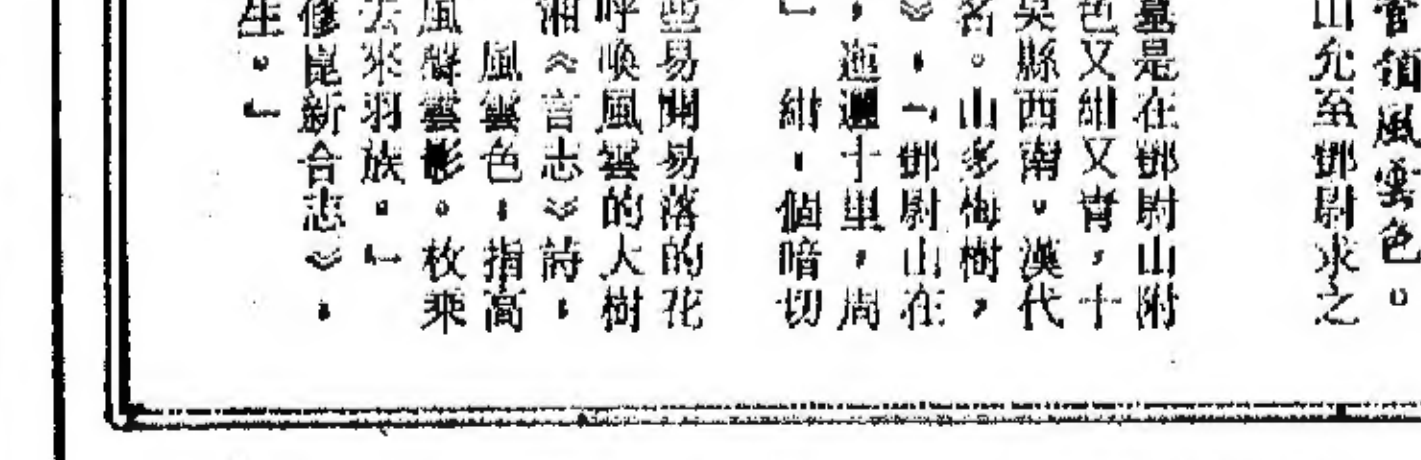 管領風雲色。
山允至鄧尉求之
墓是在鄧尉山附
色又紺又青，十
吳縣西南。漢代
名。山多梅樹，
》，「鄧尉山在
，迤邐十里，周
」紺，個暗切
些易開易落的花
呼喚風雲的大樹
湘《言志》詩，
風雲色，指高
風聲雲影。枚乘
去來羽族。」
修崑新合志》，
生。」